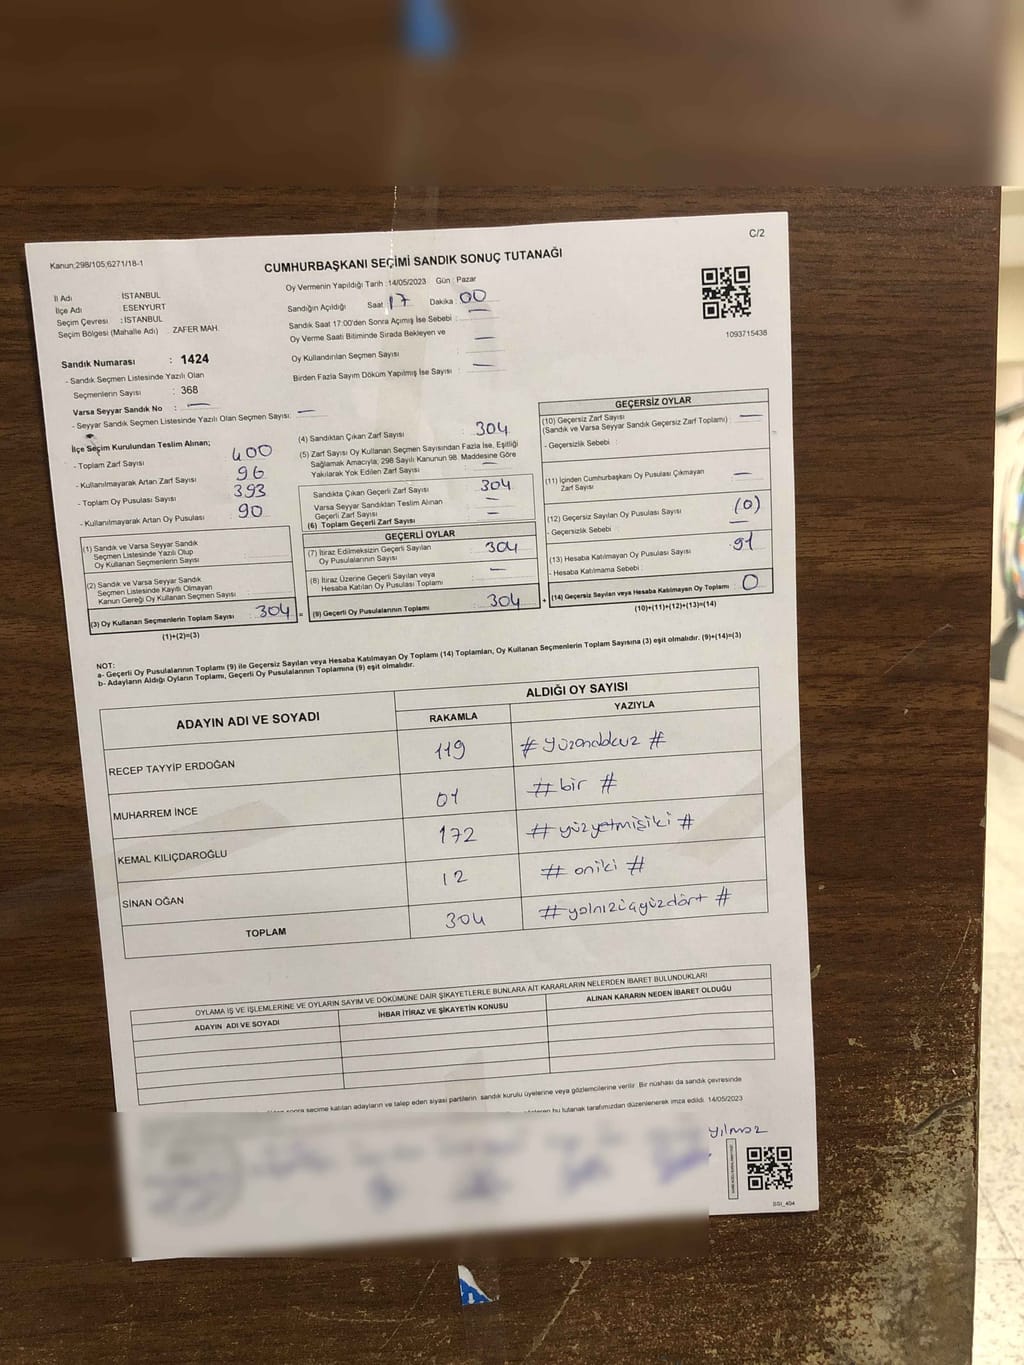 C/2
Kanun;298/105;6271/18-1
CUMHURBAŞKANI SEÇİMİ SANDIK SONUÇ TUTANAĞI
İl Adı İSTANBUL
İlçe Adı : ESENYURT
Seçim Çevresi : İSTANBUL
Seçim Bölgesi (Mahalle Adı) ZAFER MAH.
Oy Vermenin Yapıldığı Tarih : 14/05/2023 Gün : Pazar
Sandığın Açıldığı Saat 17 Dakika 00
Sandık Saat 17:00'den Sonra Açımış İse Sebebi : —
Oy Verme Saati Bitiminde Sırada Bekleyen ve
Oy Kullandırılan Seçmen Sayısı —
Birden Fazla Sayım Döküm Yapılmış İse Sayısı : —
1093715438
Sandık Numarası : 1424
- Sandık Seçmen Listesinde Yazılı Olan
Seçmenlerin Sayısı : 368
Varsa Seyyar Sandık No : —
- Seyyar Sandık Seçmen Listesinde Yazılı Olan Seçmen Sayısı: —
İlçe Seçim Kurulundan Teslim Alınan;
- Toplam Zarf Sayısı 400
- Kullanılmayarak Artan Zarf Sayısı 96
- Toplam Oy Pusulası Sayısı 393
- Kullanılmayarak Artan Oy Pusulası 90
(1) Sandık ve Varsa Seyyar Sandık
Seçmen Listesinde Yazılı Olup
Oy Kullanan Seçmenlerin Sayısı :
(2) Sandık ve Varsa Seyyar Sandık
Seçmen Listesinde Kayıtlı Olmayan
Kanun Gereği Oy Kullanan Seçmen Sayısı :
(3) Oy Kullanan Seçmenlerin Toplam Sayısı : 304 =
(1)+(2)=(3)
(4) Sandıktan Çıkan Zarf Sayısı : 304
(5) Zarf Sayısı Oy Kullanan Seçmen Sayısından Fazla İse, Eşitliği
Sağlamak Amacıyla; 298 Sayılı Kanunun 98. Maddesine Göre
Yakılarak Yok Edilen Zarf Sayısı : —
Sandıkta Çıkan Geçerli Zarf Sayısı : 304
Varsa Seyyar Sandıktan Teslim Alınan
Geçerli Zarf Sayısı : —
(6) Toplam Geçerli Zarf Sayısı : —
GEÇERLİ OYLAR
(7) İtiraz Edilmeksizin Geçerli Sayılan
Oy Pusulalarının Sayısı : 304
(8) İtiraz Üzerine Geçerli Sayılan veya
Hesaba Katılan Oy Pusulası Toplamı : —
(9) Geçerli Oy Pusulalarının Toplamı : 304 +
GEÇERSİZ OYLAR
(10) Geçersiz Zarf Sayısı
(Sandık ve Varsa Seyyar Sandık Geçersiz Zarf Toplamı) : —
- Geçersizlik Sebebi :
(11) İçinden Cumhurbaşkanı Oy Pusulası Çıkmayan
Zarf Sayısı : —
(12) Geçersiz Sayılan Oy Pusulası Sayısı : (0)
- Geçersizlik Sebebi : —
(13) Hesaba Katılmayan Oy Pusulası Sayısı : 91
- Hesaba Katılmama Sebebi :
(14) Geçersiz Sayılan veya Hesaba Katılmayan Oy Toplamı : 0
(10)+(11)+(12)+(13)=(14)
NOT:
a- Geçerli Oy Pusulalarının Toplamı (9) ile Geçersiz Sayılan veya Hesaba Katılmayan Oy Toplamı (14) Toplamları, Oy Kullanan Seçmenlerin Toplam Sayısına (3) eşit olmalıdır. (9)+(14)=(3)
b- Adayların Aldığı Oyların Toplamı, Geçerli Oy Pusulalarının Toplamına (9) eşit olmalıdır.
ADAYIN ADI VE SOYADI ALDIĞI OY SAYISI
RAKAMLA YAZIYLA
RECEP TAYYİP ERDOĞAN 119 # yüzondokuz #
MUHARREM İNCE 01 # bir #
KEMAL KILIÇDAROĞLU 172 # yüzyetmişiki #
SİNAN OĞAN 12 # oniki #
TOPLAM 304 # yalnızüçyüzdört #
OYLAMA İŞ VE İŞLEMLERİNE VE OYLARIN SAYIM VE DÖKÜMÜNE DAİR ŞİKAYETLERLE BUNLARA AİT KARARLARIN NELERDEN İBARET BULUNDUKLARI
ADAYIN ADI VE SOYADI İHBAR İTİRAZ VE ŞİKAYETİN KONUSU ALINAN KARARIN NEDEN İBARET OLDUĞU
sonra seçime katılan adayların ve talep eden siyasi partilerin sandık kurulu üyelerine veya gözlemcilerine verilir. Bir nüshası da sandık çevresinde
bu tutanak tarafımızdan düzenlenerek imza edildi. 14/05/2023
yılmaz
SSI_404